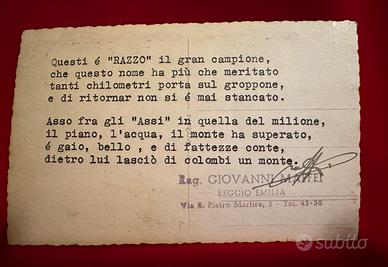 Questi é "RAZZO" il gran campione,
che questo nome ha più che meritato
tanti chilometri porta sul groppone,
e di ritornar non si é mai stancato.
Asso fra gli "Assi" in quella del milione,
il piano, l'acqua, il monte ha superato,
é gaio, bello , e di fattezze conte,
dietro lui lasciò di colombi un monte.
Rag. GIOVANNI MAFFEI
REGGIO EMILIA
Via S. Pietro Martire, 3 - Tel. 43-38
subito